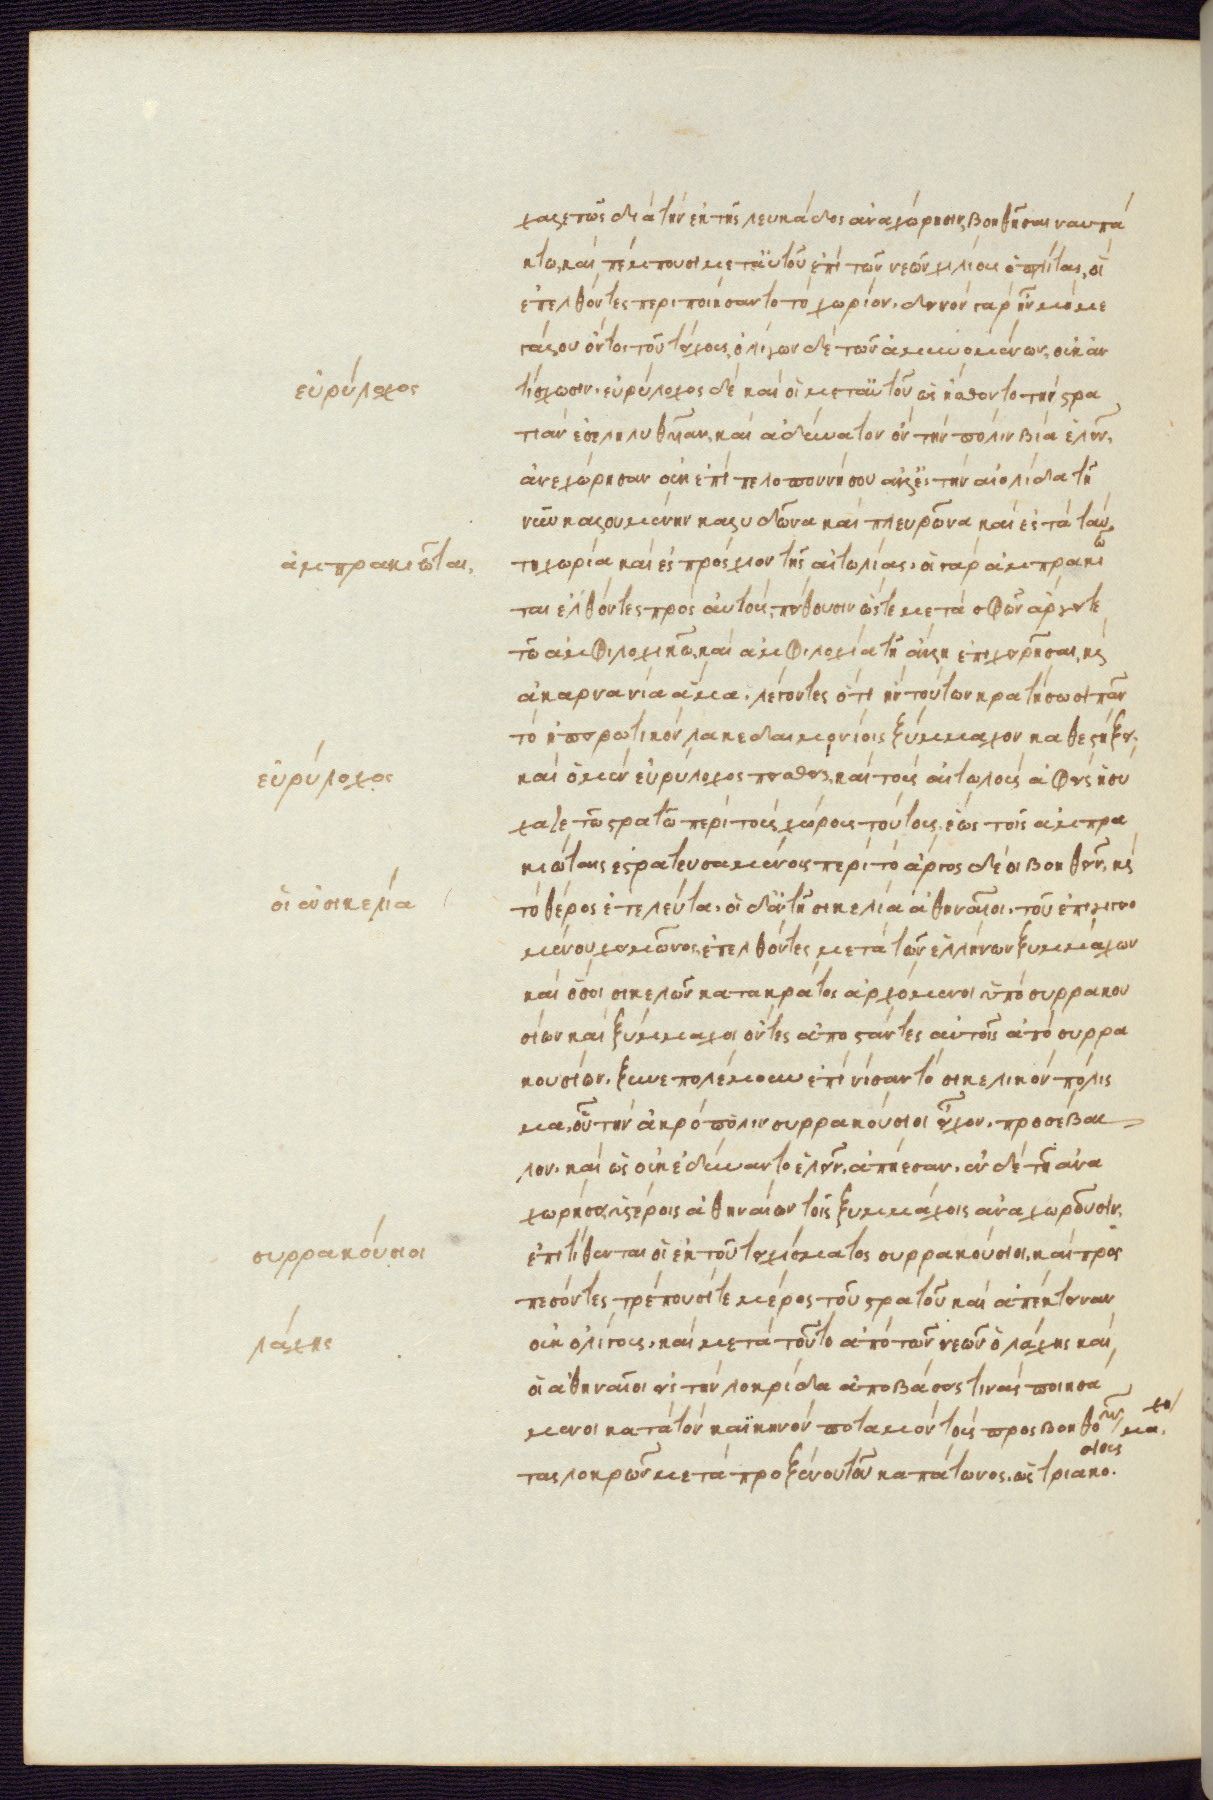 χαλεπῶς διὰ τὴν ἐκ τῆς λευκάδος ἀναχώρησιν, βοηθῆσαι ναυπά
κτω, καὶ πέμπουσι μετ' αὐτοῦ ἐπὶ τῶν νεῶν χιλίους ὁπλίτας, οἳ
ἐπελθόντες περιποιήσαντο τὸ χωρίον. δεινὸν γὰρ ἦν μὴ με
γάλου ὄντος τοῦ τείχους, ὀλίγων δὲ τῶν ἀμυνομένων, οὐκ ἀν
εὐρύλοχος
τίσχωσιν. εὐρύλοχος δὲ καὶ οἱ μετ' αὐτοῦ ὡς ἤσθοντο τὴν στρα
τιὰν ἐσεληλυθυῖαν, καὶ ἀδύνατον ὂν τὴν πόλιν βία ἑλεῖν,
ἀνεχώρησαν οὐκ ἐπὶ πελοποννήσου ἀλλ' ἐς τὴν αἰολίδα τὴ
νῦν καλουμένην καλυδῶνα καὶ πλευρῶνα καὶ ἐς τὰ ταύ
ἀμπρακιῶται.
τη χωρία καὶ ἐς πρόσχιον τῆς αἰτωλίας. οἱ γὰρ ἀμπρακιῶ
ται ἐλθόντες πρὸς αὐτοὺς, πείθουσιν ὥστε μετὰ σφῶν ἄργει τε
τῶ ἀμφιλοχικῶ, καὶ ἀμφιλοχία τῆ ἄλλη ἐπιχειρῆσαι, καὶ
ἀκαρνανία ἅμα. λέγοντες ὅτι ἢν τούτων κρατήσωσι πᾶν
τὸ ἠπειρωτικὸν λακεδαιμονίοις ξύμμαχον καθεστήξει.
εὐρύλοχος
καὶ ὁ μὲν εὐρύλοχος πεισθεὶς, καὶ τοὺς αἰτωλοὺς ἀφεὶς ἡσύ
χαζε τῶ στρατῶ περὶ τοὺς χώρους τούτους. ἕως τοῖς ἀμπρα
κιώταις ἐστρατευσαμένοις περὶ τὸ ἄργος δέοι βοηθεῖν. καὶ
οἱ ἐν σικελία
τὸ θέρος ἐτελεύτα. οἱ δ' ἐν τῆ σικελία ἀθηναῖοι. τοῦ ἐπιγιγνο
μένου χειμῶνος, ἐπελθόντες μετὰ τῶν ἑλλήνων ξυμμάχων
καὶ ὅσοι σικελῶν κατὰ κράτος ἀρχόμενοι ὑπὸ συρρακου
σίων καὶ ξύμμαχοι ὄντες ἀποστάντες αὐτοῖς ἀπὸ συρρα
κουσίων. ξυνεπολέμουν ἐπὶ νῆσαν τὸ σικελικὸν πόλις
μα, οὗ τὴν ἀκρόπολιν συρρακούσιοι εἶχον. προσέβαλ
λον. καὶ ὡς οὐκ ἐδύναντο ἑλεῖν. ἀπήεσαν. ἐν δὲ τῆ ἀνα
χωρήσει, ὑστέροις ἀθηναίων τοῖς ξυμμάχοις ἀναχωροῦσιν,
συρρακούσιοι
ἐπιτίθενται οἱ ἐκ τοῦ τειχίσματος συρρακούσιοι. καὶ προσ
πεσόντες, τρέπουσί τε μέρος τοῦ στρατοῦ καὶ ἀπέκτειναν
λάχης
οὐκ ὀλίγους. καὶ μετὰ τοῦτο ἀπὸ τῶν νεῶν ὁ λάχης καὶ
οἱ ἀθηναῖοι εἰς τὴν λοκρίδα ἀποβάσεις τινὰς ποιησά
μενοι κατὰ τὸν καϊκινὸν ποταμὸν τοὺς προσβοηθοῦν
τας λοκρῶν μετὰ προξένου τοῦ καπάτωνος. ὡς τριακοσίους